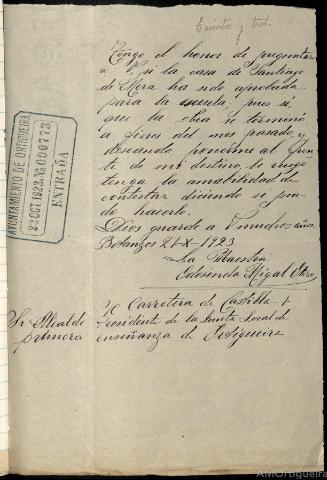 Treinta y tres.
Tengo el honor de preguntar
a V. si la casa de Santiago
de Mera ha sido aprobada
para la escuela, pues sé
que la obra se terminó
a fines del mes pasado, y
deseando ponerme al fren
te de mi destino, le ruego
tenga la amabilidad de
contestar diciendo si pue
do hacerlo.
Dios guarde a V. muchos años.
Betanzos 21-X-1923
La Maestra
Edosinda Migal Otero
AYUNTAMIENTO DE ORTIGUEIRA
23 OCT 1923 Nº 000773
ENTRAÑA
S/c Carretera de Castilla 4
Sr Alcalde Presidente de la Junta Local de
primera enseñanza de Ortigueira
AMOrtigueira